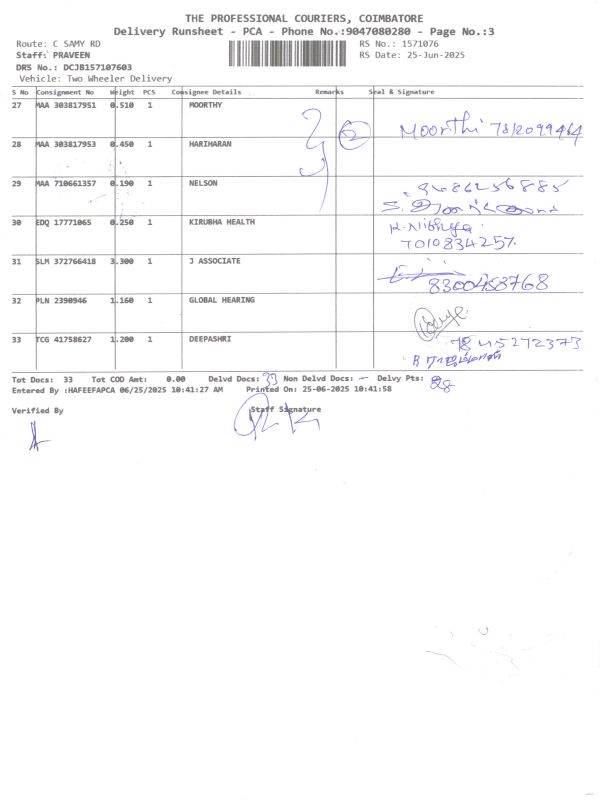 THE PROFESSIONAL COURIERS, COIMBATORE
Delivery Runsheet - PCA - Phone No.:9047080280 - Page No.:3
Route: C SAMY RD RS No.: 1571076
Staff: PRAVEEN RS Date: 25-Jun-2025
DRS No.: DCJ8157107603
Vehicle: Two Wheeler Delivery
S No Consignment No Weight PCS Consignee Details Remarks Seal & Signature
27 MAA 303817951 0.510 1 MOORTHY
2 Moorthi 7812099464
28 MAA 303817953 0.450 1 HARIHARAN
29 MAA 710661357 0.190 1 NELSON
9486256885
30 EDQ 17771065 0.250 1 KIRUBHA HEALTH
7010834257.
31 SLM 372766418 3.300 1 J ASSOCIATE
8300458768
32 PLN 2390946 1.160 1 GLOBAL HEARING
33 TCG 41758627 1.200 1 DEEPASHRI
7845272373
Tot Docs: 33 Tot COD Amt: 0.00 Delvd Docs: 33 Non Delvd Docs: - Delvy Pts: 28
Entered By :HAFEEFAPCA 06/25/2025 10:41:27 AM Printed On: 25-06-2025 10:41:58
Verified By Staff Signature